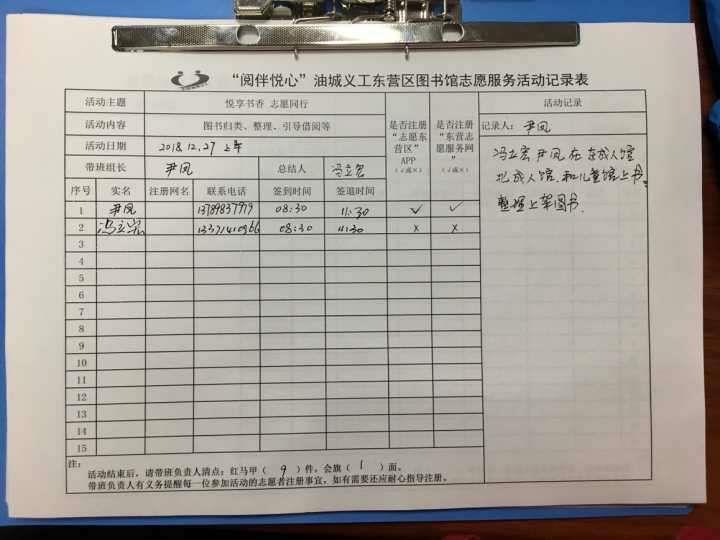 “阅伴悦心”油城义工东营区图书馆志愿服务活动记录表
活动主题 悦享书香 志愿同行 活动记录
活动内容 图书归类、整理、引导借阅等 记录人：尹凤
活动日期 2018.12.27 上午
带班组长 尹凤 总结人
是否注册“志愿东营区”APP（√或×）
是否注册“东营志愿服务网”（√或×）
序号 实名 注册网名 联系电话 签到时间 签退时间
1 尹凤 13789837979 08:30 11:30 √ √
2 08:30 11:30 × ×
3
4
5
6
7
8
9
10
11
12
13
14
15
尹凤在东成人馆
北成人馆,和儿童馆上书。
整理上架图书.
注：
活动结束后，请带班负责人清点：红马甲（ 9 ）件，会旗（ 1 ）面。
带班负责人有义务提醒每一位参加活动的志愿者注册事宜，如有需要还应耐心指导注册。